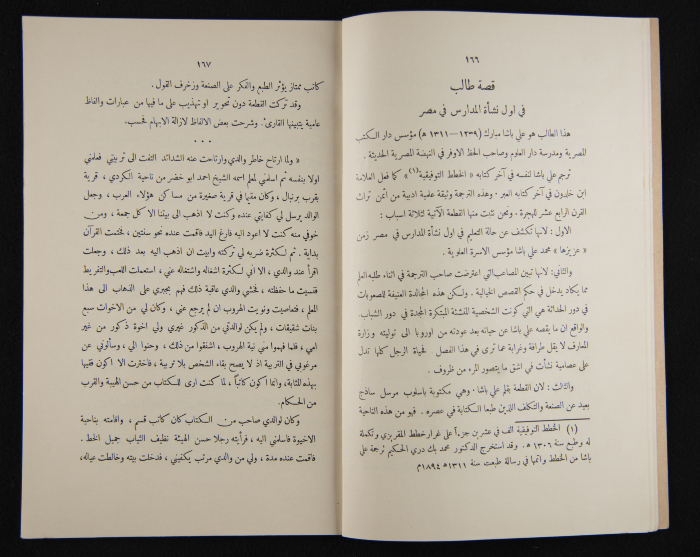 ١٦٦
قصة طالب
في اول نشأة المدارس في مصر
هذا الطالب هو علي باشا مبارك (١٢٣٩ — ١٣١١ ه) مؤسس دار الكتب
المصرية ومدرسة دار العلوم وصاحب الحظ الاوفر في النهضة المصرية الحديثة .
ترجم علي باشا لنفسه في آخر كتابه « الخطط التوفيقية (١) » كما فعل العلامة
ابن خلدون في آخر كتابه العبر . وهذه الترجمة وثيقة علمية ادبية من اثمن تراث
القرن الرابع عشر للهجرة . ونحن نثبت منها القطعة الآتية لثلاثة اسباب :
الاول : لانها تكشف عن حالة التعليم في اول نشأة المدارس في مصر زمن
« عزيزها » محمد علي باشا مؤسس الاسرة العلوية .
والثاني: لانها تبين المصاعب التي اعترضت صاحب الترجمة في اثناء طلبه العلم
مما يكاد يدخل في حكم القصص الخيالية . ولكن هذه المجالدة العنيفة للصعوبات
في دور الحداثة هي التي كونت الشخصية الفذة المبتكرة المجدة في دور الشباب.
والواقع ان ما يقصه علي باشا عن حياته بعد عودته من اوروبا الى توليته وزارة
المعارف لا يقل طرافة وغرابة عما ترى في هذا الفصل فحياة الرجل كلها تدل
على عصامية نشأت في اشق ما يتصور المرء من ظروف .
والثالث : لان القطعة بقلم علي باشا . وهي مكتوبة باسلوب مرسل ساذج
بعيد عن الصنعة والتكلف اللذين طبعا الكتابة في عصره . فهو من هذه الناحية
(١) الخطط التوفيقية الف في عشرين جزءاً على غرار خطط المقريزي وتكملة
له وطبع سنة ١٣٠٦ ه . وقد استخرج الدكتور محمد بك دري الحكيم ترجمة علي
باشا من الخطط واتمها في رسالة طبعت سنة ١٣١١ ه ١٨٩٤م
١٦٧
كاتب ممتاز يؤثر الطبع والفكر على الصنعة وزخرف القول .
وقد تركت القطعة دون تحوير او تهذيب على ما فيها من عبارات والفاظ
عامية يتبينها القارىء. وشرحت بعض الالفاظ لازالة الابهام فحسب.
* * *
« ولما ارتاح خاطر والدي وارتاحت عنه الشدائد التفت الى تربيتي فعلمني
اولا بنفسه ثم اسلمني لمعلم اسمه الشيخ احمد ابو خضر من ناحية الكردي ، قرية
بقرب برنبال ، وكان مقيما في قرية صغيرة من مساكن هؤلاء العرب ، وجعل
الوالد يرسل لي كفايتي عنده وكنت لا اذهب الى بيتنا الا كل جمعة ، ومن
خوفي منه كنت لا اعود اليه فارغ اليد فاقمت عنده نحو سنتين ، فختمت القرآن
بداية . ثم لكثرة ضربه لي تركته وابيت ان اذهب اليه بعد ذلك ، وجعلت
اقرأ عند والدي ، الا اني لكثرة اشغاله واشتغاله عني ، استعملت اللعب والتفريط
فنسيت ما حفظته ، فخشي والدي عاقبة ذلك فهم بجبري على الذهاب الى هذا
المعلم ، فتعاصيت ونويت الهروب ان لم يرجع عني ، وكان لي من الاخوات سبع
بنات شقيقات ، ولم يكن لوالدتي من الذكور غيري ولي اخوة ذكور من غير
امي ، فلما فهموا مني نية الهروب ، اشفقوا من ذلك ، وحنوا الي ، وسألوني عن
مرغوبي في التربية اذ لا يصح بقاء الشخص بلا تربية ، فاخترت الا اكون فقيها
بهذه المثابة ، وانما اكون كاتباً ، لما كنت ارى للكتاب من حسن الهيئة والقرب
من الحكام.
وكان لوالدي صاحب من الكتاب كان كاتب قسم ، واقامته بناحية
الاخيوة فاسلمني اليه ، فرأيته رجلا حسن الهيئة نظيف الثياب جميل الخط .
فاقمت عنده مدة ، ولي من والدي مرتب يكفيني ، فدخلت بيته وخالطت عياله،